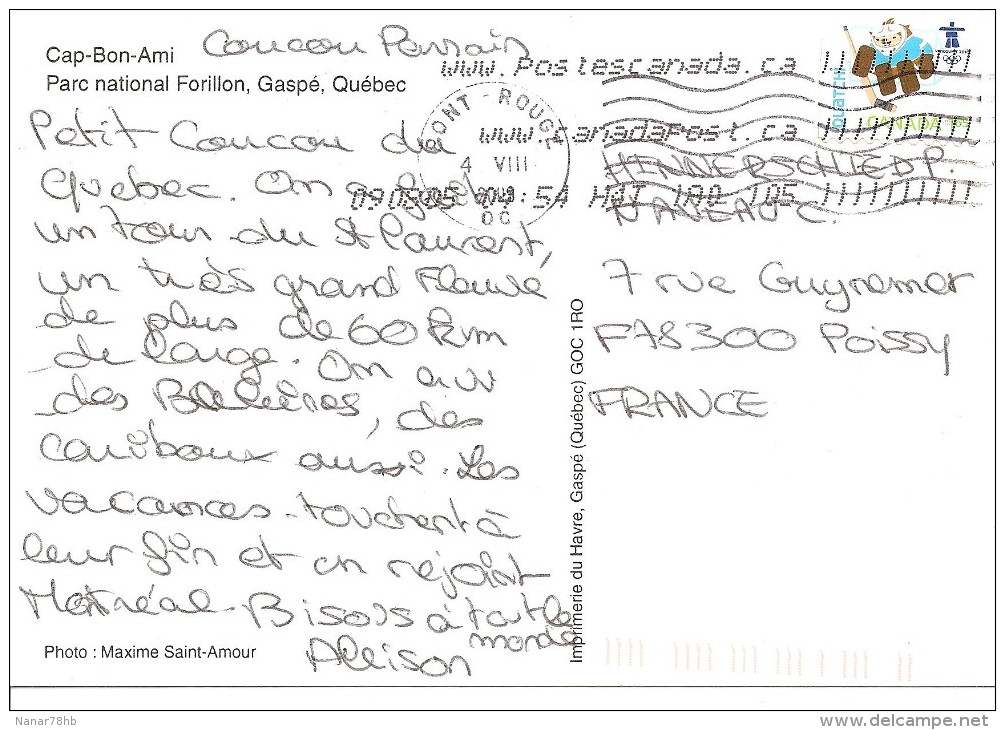 Coucou Parrain
Cap-Bon-Ami
Parc national Forillon, Gaspé, Québec
Petit Coucou du
Quebec. On a fait
un tour du St Laurent,
un très grand Fleuve
de plus de 60 km
de large. On a vu
des Baleines, des
cariboux aussi. Les
vacances touchent à
leur fin et on rejoint
Montréal. Bisous à tout le
monde
Allison
Photo : Maxime Saint-Amour
Imprimerie du Havre, Gaspé (Québec) GOC 1RO
www.postescanada.ca
www.canadapost.ca
PONT-ROUGE
4 VIII
QC
QUATCHI
CANADA
HINNERSCHIED P.
NANEAU C.
7 rue Guynemer
F78300 Poissy
FRANCE
Nanar78hb
www.delcampe.net